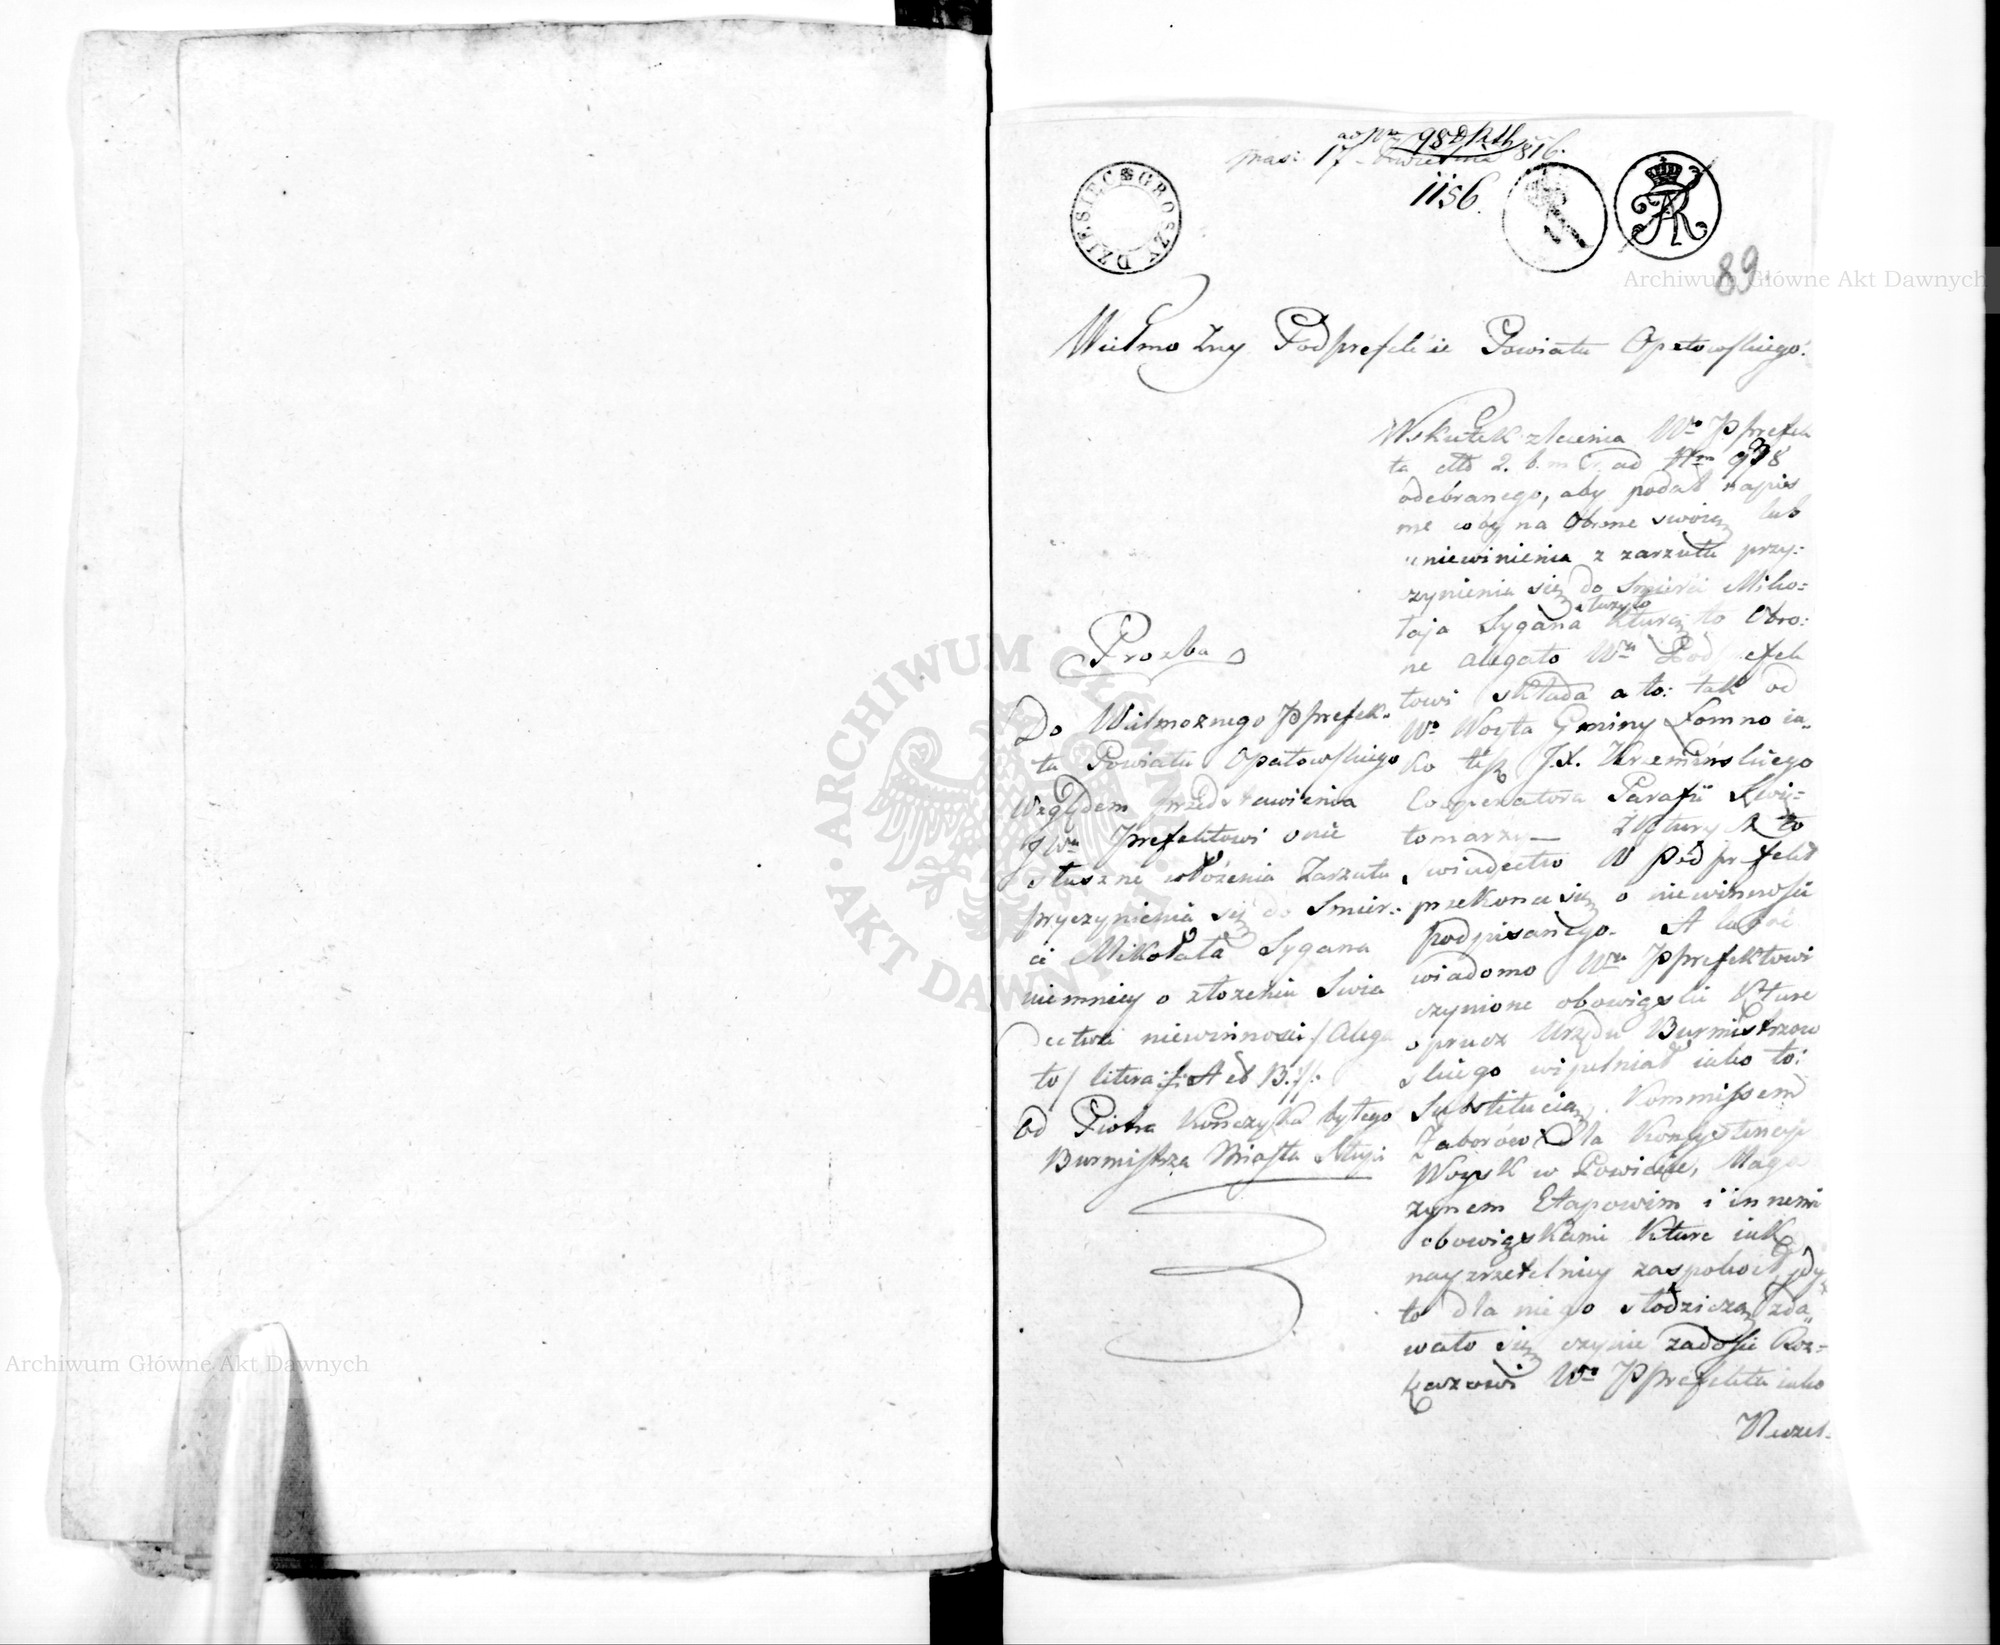 ad Nrm 98
pras: 17 Kwietnia 816.
1156.
DZIESIĘC GROSZY
89
Wielmożny Podprefekcie Powiatu Opatowskiego.
Proźba
Do Wielmoznego Pprefek-
ta Powiatu Opatowskiego
Względem przedstawienia
JWu Prefektowi o nie
słuszne włożenia Zarzutu
pryczynienia się do Smier-
ci Mikołaia Sygana
niemniey o złozeniu Swia
dectwa niewinnosci / Alega
to / litera :/: A et B :/:
Od Piotra Konczyka byłego
Burmistrza Miasta Słupi
Wskutek zlecenia Wo Pprefek
ta dtto 2. b. m. Cr. ad Nrm 938
odebranego, aby podał napis
me coby na Obrone swoią lub
uniewinienia z zarzutu przy-
zynienia się do Smierci Miko-
łaja Sygana służyło Kturą to Obro-
ne alegato Wu Podprefek
towi składa a to: tak od
Wo Woyta Gminy Łomno ia-
ko też JX. Krzeminskiego
Cooperatora Parafii Swię-
tomarzy — Z ktury to
swiadectw W Podprefekt
przekona się o niewinnosci
podpisanego. A lubo
wiadomo Wu Pprefektowi
czynione obowiązki Kture
oprucz Urzędu Burmistrzow
skiego wipełniał iako to:
Substitucią, Kommissem
Zaborów dla Konzystencyi
Woysk w Powiecie, Maga
zynem Etapowim i innemi
obowiązkami Kture iak
nayrzetelniey zaspokoił, gdy
to dla niego słodziczą zda-
wało się czynić zadosic Roz-
kazowi Wo Pprefekta iako
Archiwum Główne Akt Dawnych
ARCHIWUM GŁÓWNE AKT DAWNYCH
Archiwum Główne Akt Dawnych